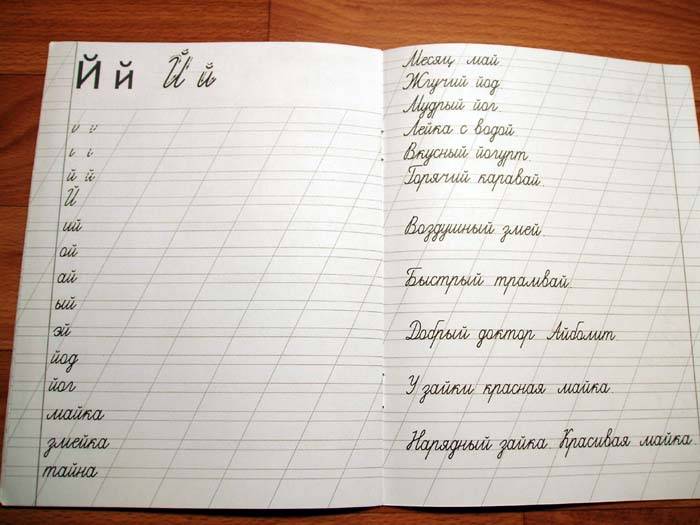 Й й Й й
й й
й й
Й
ий
ой
ай
ый
эй
йод
йог
майка
змейка
тайна
Месяц май
Жгучий йод
Мудрый йог
Лейка с водой.
Вкусный йогурт.
Горячий каравай.
Воздушный змей
Быстрый трамвай.
Добрый доктор Айболит.
У зайки красная майка.
Нарядный зайка. Красивая майка.